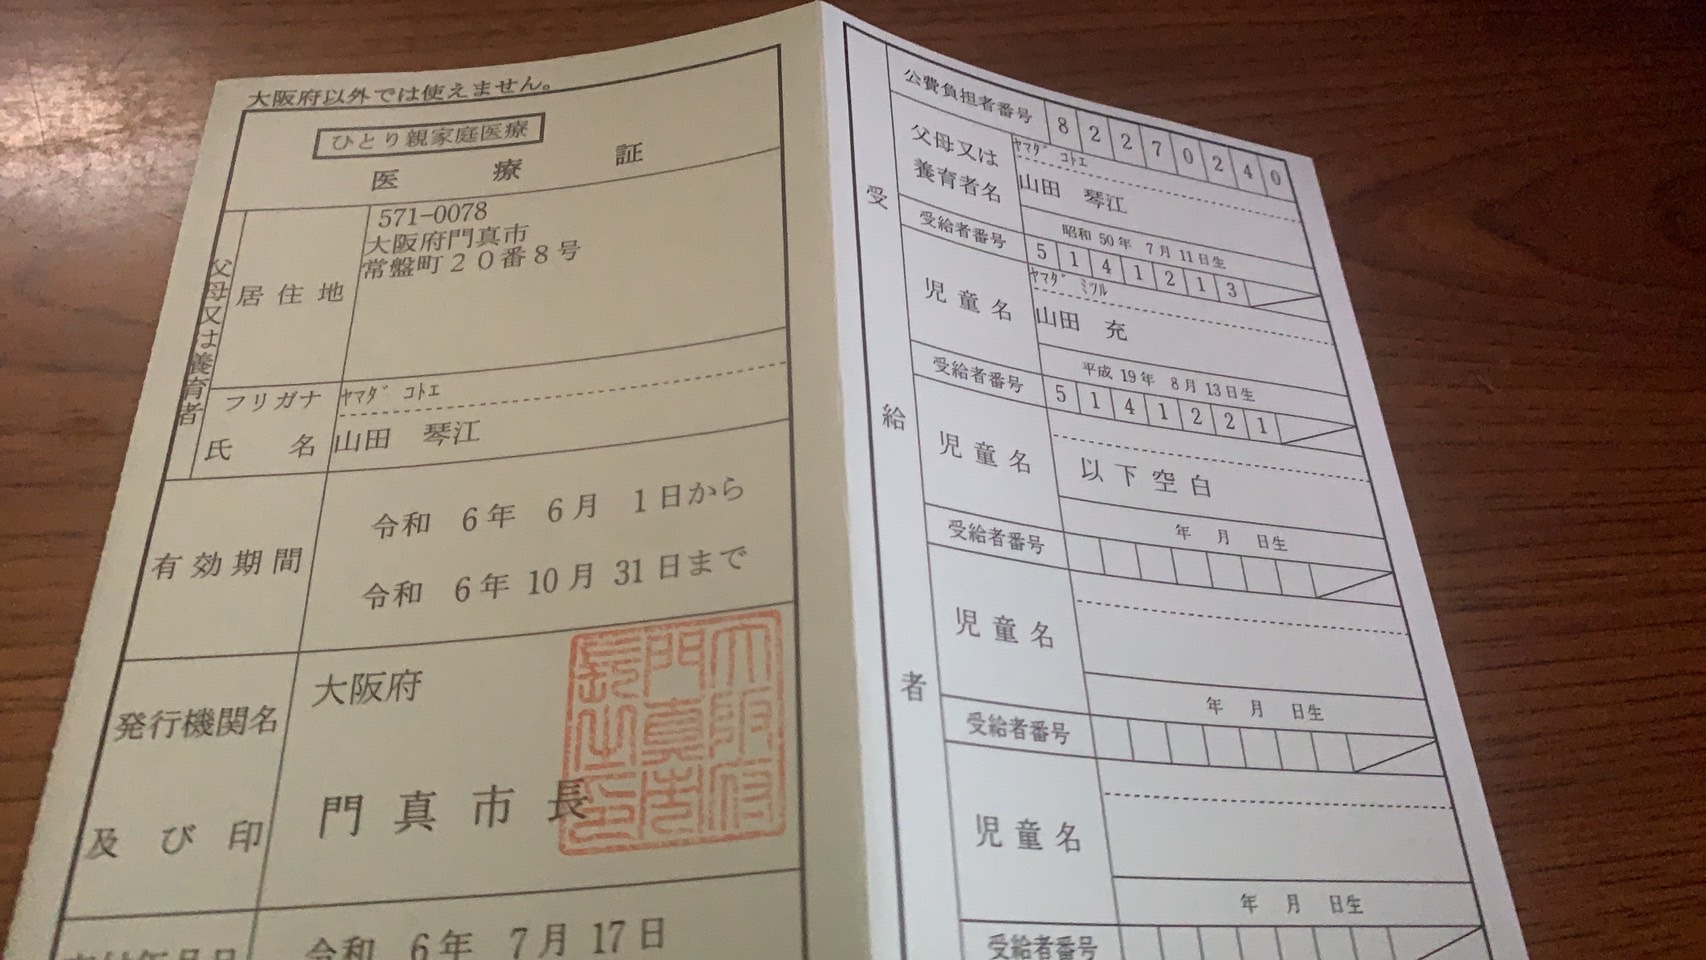 大阪府以外では使えません。
ひとり親家庭医療
医療証
父母又は養育者
居住地
571-0078
大阪府門真市
常盤町20番8号
フリガナ ﾔﾏﾀﾞ ｺﾄｴ
氏名 山田 琴江
有効期間
令和 6年 6月 1日から
令和 6年 10月 31日まで
発行機関名
及び印
大阪府
門真市長
大阪府門真市長之印
令和 6年 7月 17日
公費負担者番号 82270240
受給者
父母又は
養育者名
ﾔﾏﾀﾞ ｺﾄｴ
山田 琴江
昭和 50年 7月 11日生
受給者番号 5141213
児童名
ﾔﾏﾀﾞ ﾐﾂﾙ
山田 充
平成 19年 8月 13日生
受給者番号 5141221
児童名
以下空白
年 月 日生
受給者番号
児童名
年 月 日生
受給者番号
児童名
年 月 日生
受給者番号